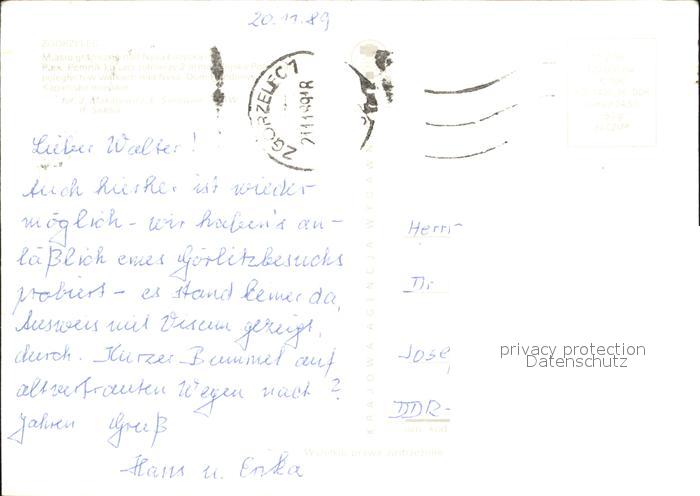 20.11.89
ZGORZELEC
ZGORZELEC 1
Lieber Walter!
Auch hierher ist wieder
möglich - wir haben's an-
läßlich eines Görlitzbesuchs
probiert - es stand keiner da,
Ausweis mit Visum gezeigt,
durch. Kurzer Bummel auf
altvertrauten Wegen nach ?
Jahren Gruß
Hans u. Erika
Herrn
Dr
Jose
DDR-
KRAJOWA AGENCJA WYDAWN
Wszelkie prawa zastrzeżone
privacy protection
Datenschutz